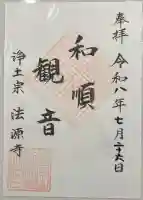 奉拝 令和八年七月二十六日
和順
観音
浄土宗 法源寺